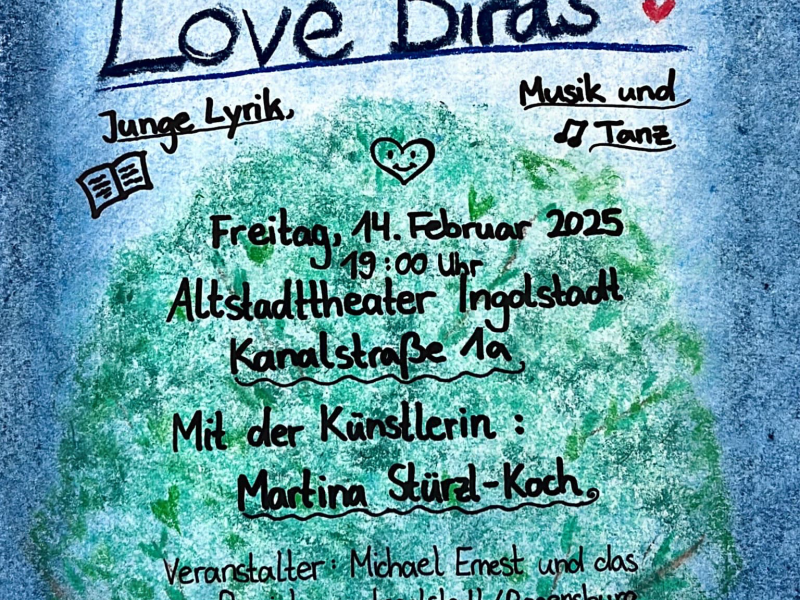 Love Birds
Junge Lyrik,
Musik und
Tanz
Freitag, 14. Februar 2025
19:00 Uhr
Altstadttheater Ingolstadt
Kanalstraße 1a,
Mit der Künstlerin :
Martina Stürzl-Koch,
Veranstalter: Michael Ernest und das